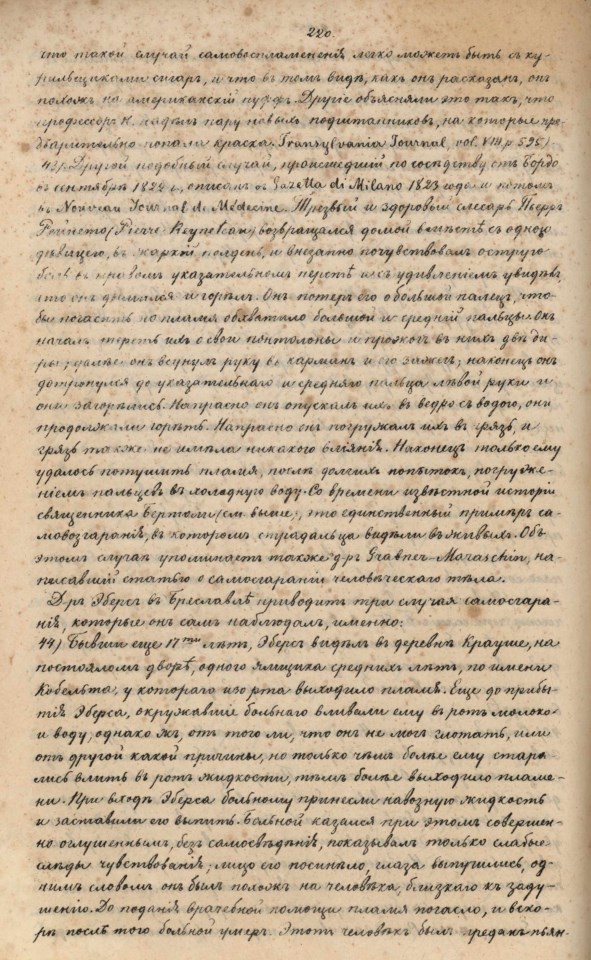 220.
что такой случай самовоспламененія легко можетъ быть съ ку-
рильщиками сигаръ, и что въ томъ видѣ, какъ онъ расказанъ, онъ
похожъ на американскій пуффъ. Другіе объясняли это такъ, что
профессоръ H. надѣлъ пару новыхъ подштанниковъ, на которые пре-
дварительно попала краска. Transylvania Journal, vol. VIII p 595)
43) Другой подобный случай, происшедшій по сосѣдству отъ Бордо
въ сентябрѣ 1822 г., описанъ въ Gazetta di Milano 1823 года и потомъ
въ Nouveau Journal de Médecine. Трезвый и здоровый слесарь Пьерръ
Рейнето (Pierre Reynetau) возвращался домой вмѣстѣ съ одною
дѣвицею, въ жаркій полдень, и внезапно почувствовалъ острую
боль въ правомъ указательномъ перстѣ и съ удивленіемъ увидѣлъ,
что онъ дымился и горѣлъ. Онъ потеръ его о большой палецъ, что-
бы погасить но пламя обхватило большой и средній пальцы. Онъ
началъ тереть ихъ о свои понтолоны и прожогъ въ нихъ двѣ ди-
ры; далѣе онъ всунулъ руку въ карманъ и его зажогъ; наконецъ онъ
дотронулся до указательнаго и средняго пальца лѣвой руки и
они загорѣлись. Напрасно онъ опускалъ ихъ въ ведро съ водою, они
продолжали горѣть. Напрасно онъ погружалъ ихъ въ грязь, и
грязь также не имѣла никакого вліянія. Наконецъ только ему
удалось потушить пламя, послѣ долгихъ попытокъ, погруже-
ніемъ пальцевъ въ холодную воду. Со времени извѣстной исторіи
священника Бертоли (см выше), это единственный примѣръ са-
мовозгаранія, въ которомъ страдальца видѣли въ живыхъ. Объ
этомъ случаѣ упоминаетъ также д-ръ Grabner-Maraschin, на-
писавшій статью о самосгараніи человѣческаго тѣла.
Д-ръ Эберсъ въ Бреславлѣ приводитъ три случая самосгара-
нія, которые онъ самъ наблюдалъ, именно:
44) Бывши еще 17ти лѣтъ, Эберсъ видѣлъ въ деревнѣ Крауше, на
постояломъ дворѣ, одного ямщика среднихъ лѣтъ, по имени
Кобельта, у котораго изо рта выходило пламя. Еще до прибы-
тія Эберса, окружавшіе больнаго вливали ему въ ротъ молоко
и воду; однако жъ, отъ того ли, что онъ не могъ глотать, или
отъ другой какой причины, но только чѣмъ болѣе ему стара-
лись влить въ ротъ жидкости, тѣмъ болѣе выходило пламе-
ни. При входѣ Эберса больному принесли навозную жидкость
и заставили его выпить. Больной казался при этомъ совершен-
но оглушеннымъ, безъ самосвѣдѣнія, показывалъ только слабые
слѣды чувствованія; лицо его посинѣло, глаза выпучились, од-
нимъ словомъ онъ былъ похожъ на человѣка, близкаго къ заду-
шенію. До поданія врачебной помощи пламя погасло, и вско-
рѣ послѣ того больной умеръ. Этотъ человѣкъ былъ преданъ пьян-